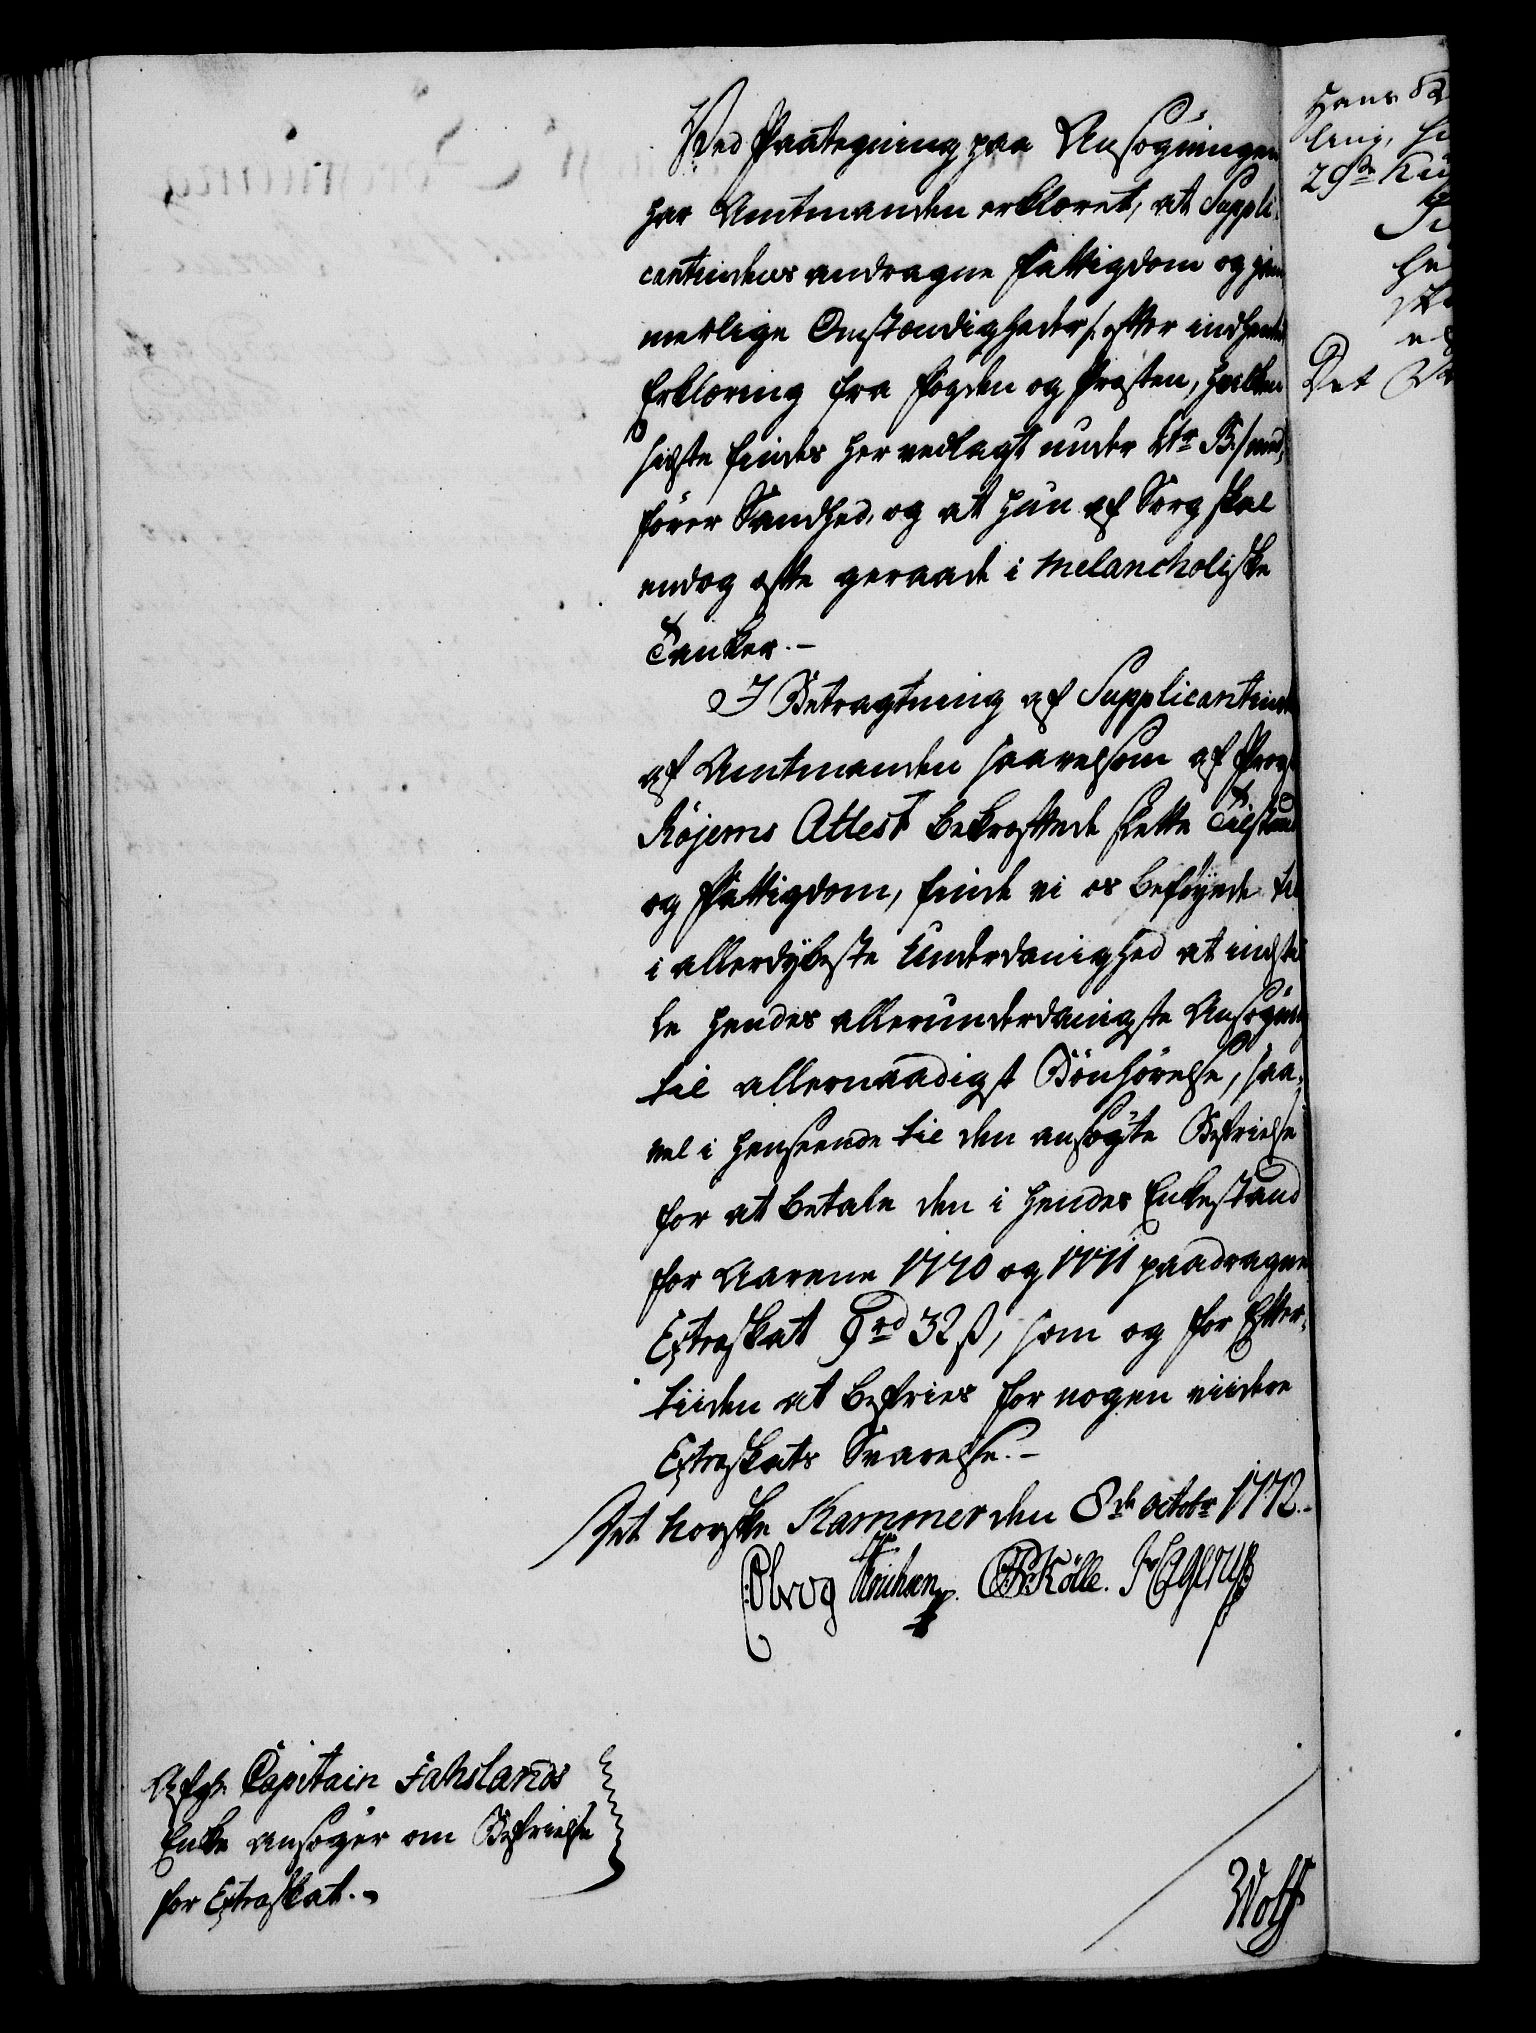 Ved Paategning paa Ansøgningen
har Amtmanden erklæret, at Suppli-
cantindens andragne Fattigdom og
merlige Omstændigheder /: efter indhentet
Erklæring fra Fogden og Presten, hvilken
sidste findes her vedlagt under Ltr B :/ med-
fører Sandhed, og at hun af Sorg skal
endog ofte geraade i melancholiske
Tanker. –
I Betragtning af Supplicantindens
af Amtmanden saavelsom af Provst
Röjems Attest bekræftede slette Tilstand
og Fattigdom, finde vi os beføyede til
i allerdybeste Underdanighed at indstil
le hendes allerunderdanigste Ansøgning
til allernaadigst Bönhörelse, saa-
vel i Henseende til den ansøgte Befrielse
for at betale den i hendes Enkestand
for Aarene 1770 og 1771 paadragne
Extraskat 9 rd 32 ß, som og for Efter-
tiiden at befries for nogen viidere
Extraskats Svarelse. –
Det norske Kammer den 8de octobr 1772.
CKölle. Hagerup
Afgl. Capitain Fahslands
Enke ansøger om Befrielse
for Extraskat. –
Wolf
Hans
29de
Det